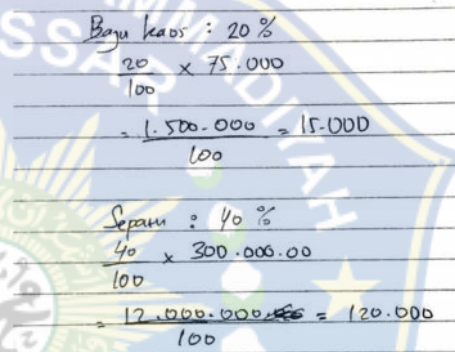 MMADIYAH
SSAR
Baju kaos : 20 %
20/100 × 75.000
= 1.500.000/100 = 15.000
Sepatu : 40 %
40/100 × 300.000.00
= 12.000.000/100 = 120.000